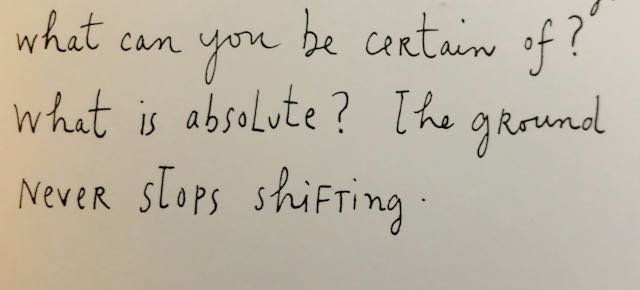 what can you be certain of?
What is absolute? The ground
never stops shifting.